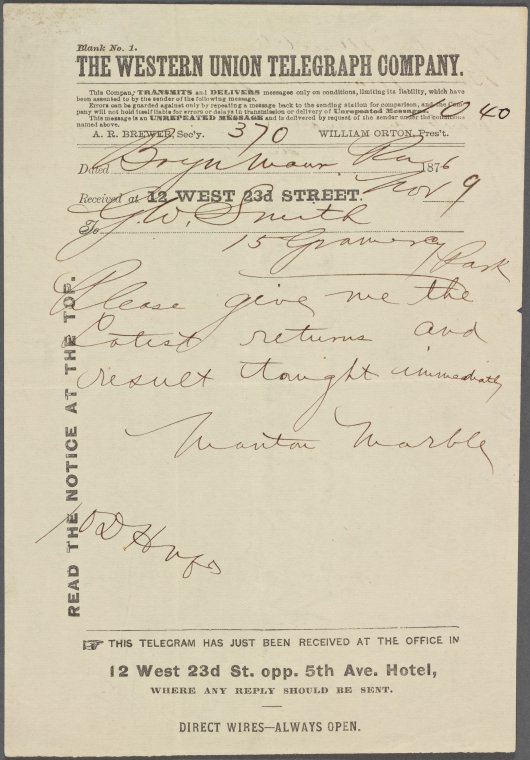 Blank No. 1.
THE WESTERN UNION TELEGRAPH COMPANY.
This Company TRANSMITS and DELIVERS messages only on conditions, limiting its liability, which have
been assented to by the sender of the following message.
Errors can be guarded against only by repeating a message back to the sending station for comparison, and the Com-
pany will not hold itself liable for errors or delays in transmission or delivery of Unrepeated Messages.
This message is an UNREPEATED MESSAGE and is delivered by request of the sender under the conditions
named above.
40
A. R. BREWER, Sec'y. 370 WILLIAM ORTON, Pres't.
Dated Bryn Mawr Pa 1876
Received at 12 WEST 23d STREET. Nov 9
To G.W. Smith
15 Gramercy Park
Please give me the
Latest returns and
result tonight immediately
Manton Marble
READ THE NOTICE AT THE TOP.
☞ THIS TELEGRAM HAS JUST BEEN RECEIVED AT THE OFFICE IN
12 West 23d St. opp. 5th Ave. Hotel,
WHERE ANY REPLY SHOULD BE SENT.
DIRECT WIRES—ALWAYS OPEN.